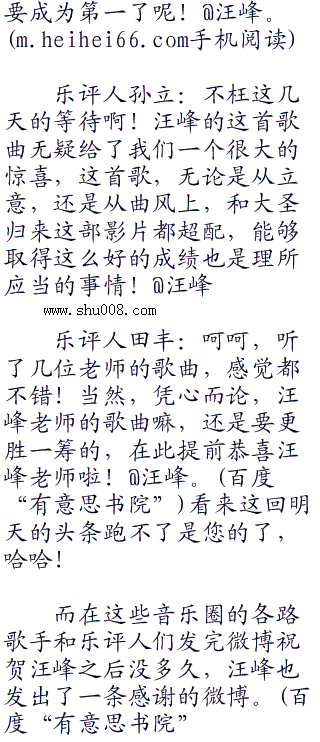 要成为第一了呢！@汪峰。
(m.heihei66.com手机阅读)
乐评人孙立：不枉这几
天的等待啊！汪峰的这首歌
曲无疑给了我们一个很大的
惊喜，这首歌，无论是从立
意，还是从曲风上，和大圣
归来这部影片都超配，能够
取得这么好的成绩也是理所
应当的事情！@汪峰
www.shu008.com
乐评人田丰：呵呵，听
了几位老师的歌曲，感觉都
不错！当然，凭心而论，汪
峰老师的歌曲嘛，还是要更
胜一筹的，在此提前恭喜汪
峰老师啦！@汪峰。(百度
“有意思书院”)看来这回明
天的头条跑不了是您的了，
哈哈！
而在这些音乐圈的各路
歌手和乐评人们发完微博祝
贺汪峰之后没多久，汪峰也
发出了一条感谢的微博。(百
度“有意思书院”